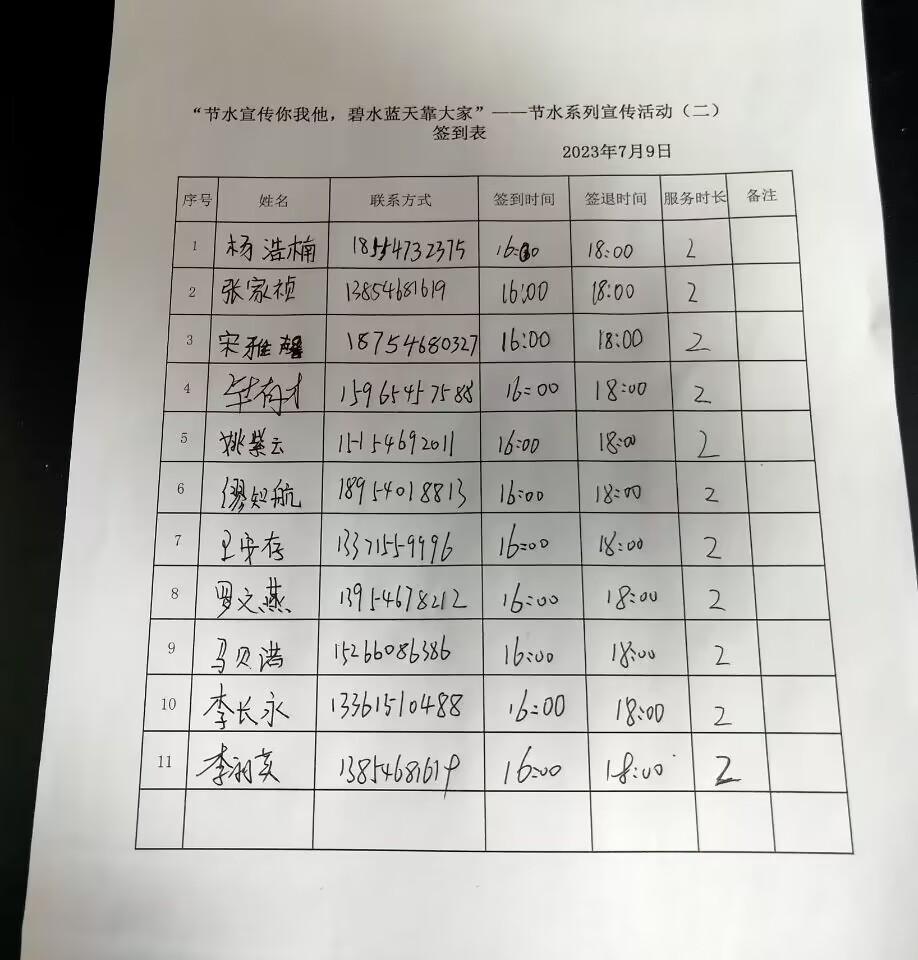 “节水宣传你我他，碧水蓝天靠大家”——节水系列宣传活动（二）
签到表
2023年7月9日
序号 姓名 联系方式 签到时间 签退时间 服务时长 备注
1 杨浩楠 18554732375 16:00 18:00 2
2 张家祯 13854681619 16:00 18:00 2
3 宋雅馨 18754680327 16:00 18:00 2
4 毕有才 15965457588 16:00 18:00 2
5 姚紫云 15154692011 16:00 18:00 2
6 缪知航 18954018813 16:00 18:00 2
7 王安存 13371559996 16:00 18:00 2
8 罗文燕 13954678212 16:00 18:00 2
9 马贝浩 15266086386 16:00 18:00 2
10 李长永 13361510488 16:00 18:00 2
11 李羽英 13854681619 16:00 18:00 2